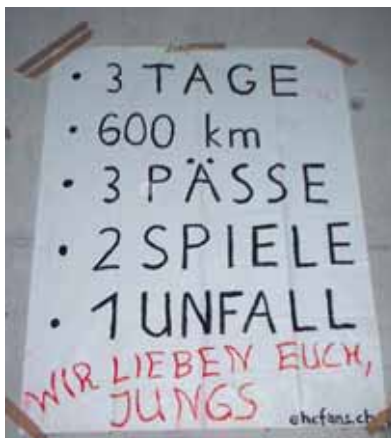 • 3 TAGE
• 600 km
• 3 PÄSSE
• 2 SPIELE
• 1 UNFALL
WIR LIEBEN EUCH,
JUNGS
ehcfans.ch